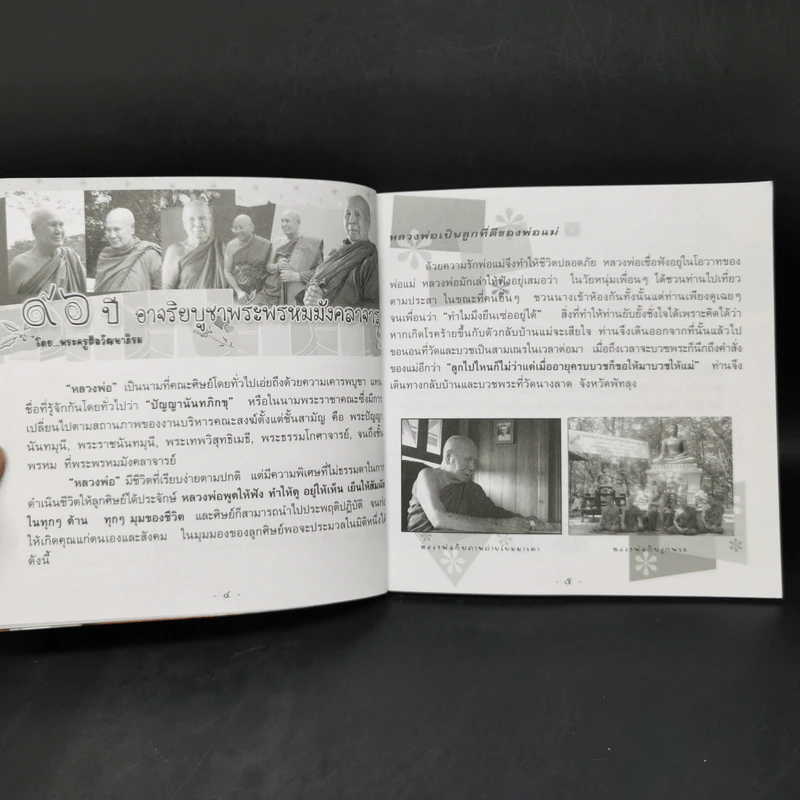 ๙๖ ปี อาจริยบูชาพระพรหมมังคลาจาร
โดย...พระครูศีลวัฒนาภิรม
"หลวงพ่อ" เป็นนามที่คณะศิษย์โดยทั่วไปเอ่ยถึงด้วยความเคารพบูชา แทน
ชื่อที่รู้จักกันโดยทั่วไปว่า "ปัญญานันทภิกขุ" หรือในนามพระราชาคณะซึ่งมีการ
เปลี่ยนไปตามสถานภาพของงานบริหารคณะสงฆ์ตั้งแต่ชั้นสามัญ คือ พระปัญญา
นันทมุนี, พระราชนันทมุนี, พระเทพวิสุทธิเมธี, พระธรรมโกศาจารย์, จนถึงชั้น
พรหม ที่พระพรหมมังคลาจารย์
"หลวงพ่อ" มีชีวิตที่เรียบง่ายตามปกติ แต่มีความพิเศษที่ไม่ธรรมดาในการ
ดำเนินชีวิตให้ลูกศิษย์ได้ประจักษ์ หลวงพ่อพูดให้ฟัง ทำให้ดู อยู่ให้เห็น เย็นให้สัมผัส
ในทุกๆ ด้าน ทุกๆ มุมของชีวิต และศิษย์ก็สามารถนำไปประพฤติปฏิบัติ จนก่อ
ให้เกิดคุณแก่ตนเองและสังคม ในมุมมองของลูกศิษย์พอจะประมวลในมิติหนึ่งได้
ดังนี้
- ๔ -
หลวงพ่อเป็นลูกที่ดีของพ่อแม่
ด้วยความรักพ่อแม่จึงทำให้ชีวิตปลอดภัย หลวงพ่อเชื่อฟังอยู่ในโอวาทของ
พ่อแม่ หลวงพ่อมักเล่าให้ฟังอยู่เสมอว่า ในวัยหนุ่มเพื่อนๆ ได้ชวนท่านไปเที่ยว
ตามประสา ในขณะที่คนอื่นๆ ชวนนางเข้าห้องกันทั้งนั้นแต่ท่านเพียงดูเฉยๆ
จนเพื่อนว่า "ทำไมมึงยืนเซ่ออยู่ได้" สิ่งที่ทำให้ท่านยับยั้งชั่งใจได้เพราะคิดได้ว่า
หากเกิดโรคร้ายขึ้นกับตัวกลับบ้านแม่จะเสียใจ ท่านจึงเดินออกจากที่นั้นแล้วไป
ขอนอนที่วัดและบวชเป็นสามเณรในเวลาต่อมา เมื่อถึงเวลาจะบวชพระก็นึกถึงคำสั่ง
ของแม่อีกว่า "ลูกไปไหนก็ไม่ว่าแต่เมื่ออายุครบบวชก็ขอให้มาบวชให้แม่" ท่านจึง
เดินทางกลับบ้านและบวชพระที่วัดนางลาด จังหวัดพัทลุง
หลวงพ่อกับภาพถ่ายโยมมารดา
- ๕ -